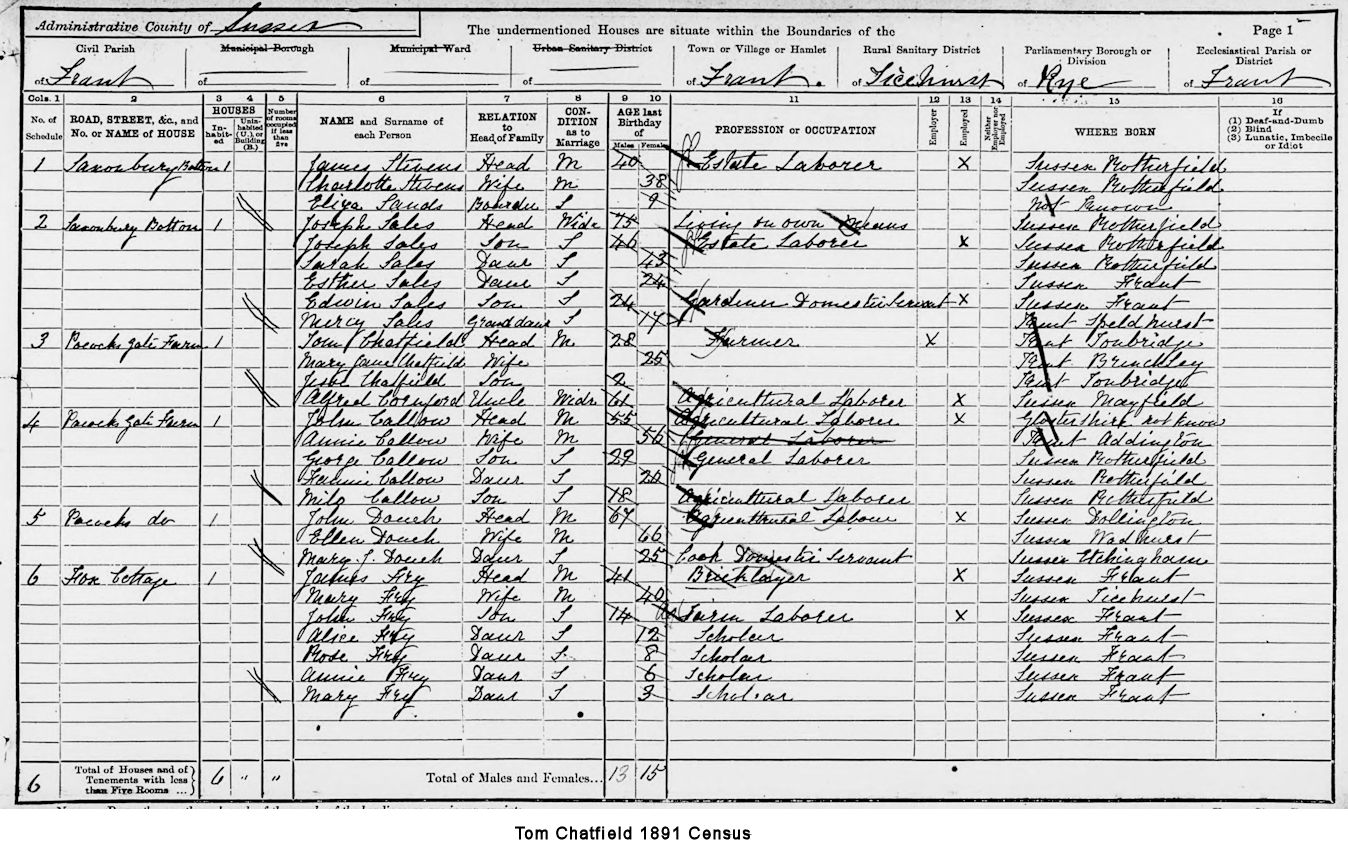 Administrative County of Sussex
The undermentioned Houses are situate within the Boundaries of the
Page 1
Civil Parish of Frant
Municipal Borough of
Municipal Ward of
Urban Sanitary District of
Town or Village or Hamlet of Frant.
Rural Sanitary District of Ticehurst
Parliamentary Borough or Division of Rye
Ecclesiastical Parish or District of Frant
Cols. 1 2 3 4 5 6 7 8 9 10 11 12 13 14 15 16
No. of Schedule
ROAD, STREET, &c., and No. or NAME of HOUSE
HOUSES
In-habit-ed
Unin-habited (U.) or Building (B.)
Number of rooms occupied if less than five
NAME and Surname of each Person
RELATION to Head of Family
CON-DITION as to Marriage
AGE last Birthday of
Males Females
PROFESSION or OCCUPATION
Employer
Employed
Neither Employer nor Employed
WHERE BORN
If
(1) Deaf-and-Dumb
(2) Blind
(3) Lunatic, Imbecile or Idiot
1 Saxonbury Bottom 1 James Stevens Head M 40 Estate Laborer X Sussex Rotherfield
Charlotte Stevens Wife M 38 Sussex Rotherfield
Eliza Sands Boarder S 9 Not Known
2 Saxonbury Bottom 1 Joseph Sales Head Widr 75 Living on own Means Sussex Rotherfield
Joseph Sales Son S 46 Estate Laborer X Sussex Rotherfield
Sarah Sales Daur S 43 Sussex Rotherfield
Esther Sales Daur S 24 Sussex Frant
Edwin Sales Son S 24 Gardiner Domestic Servant X Sussex Frant
Mercy Sales Grand daur S 17 Kent Speldhurst
3 Pococks Gate Farm 1 Tom Chatfield Head M 28 Farmer X Kent Tonbridge
Mary Jane Chatfield Wife 25 Kent Brenchley
Chatfield Son 2 Kent Tonbridge
Alfred Cornford Uncle Widr 61 Agricultural Laborer X Sussex Mayfield
4 Pococks Gate Farm 1 John Callow Head M 55 Agricultural Laborer X Glostershire not know
Annie Callow Wife M 56 General Laborer Kent Addington
George Callow Son S 29 General Laborer Sussex Rotherfield
Fannie Callow Daur S 20 Sussex Rotherfield
Callow Son S 18 Agricultural Laborer Sussex Rotherfield
5 Pococks do 1 John Douch Head M 67 Agricultural Labour X Sussex Dollington
Ellen Douch Wife M 66 Sussex Wadhurst
Mary J. Douch Daur S 25 Cook Domestic Servant Sussex Etchingham
6 Fox Cottage 1 James Fry Head M 41 Bricklayer X Sussex Frant
Mary Fry Wife M 40 Sussex Ticehurst
John Fry Son S 14 Farm Laborer X Sussex Frant
Alice Fry Daur S 12 Scholar Sussex Frant
Rose Fry Daur S 8 Scholar Sussex Frant
Annie Fry Daur S 6 Scholar Sussex Frant
Mary Fry Daur S 3 Scholar Sussex Frant
6 Total of Houses and of Tenements with less than Five Rooms ... 6 " " Total of Males and Females... 13 15
Tom Chatfield 1891 Census